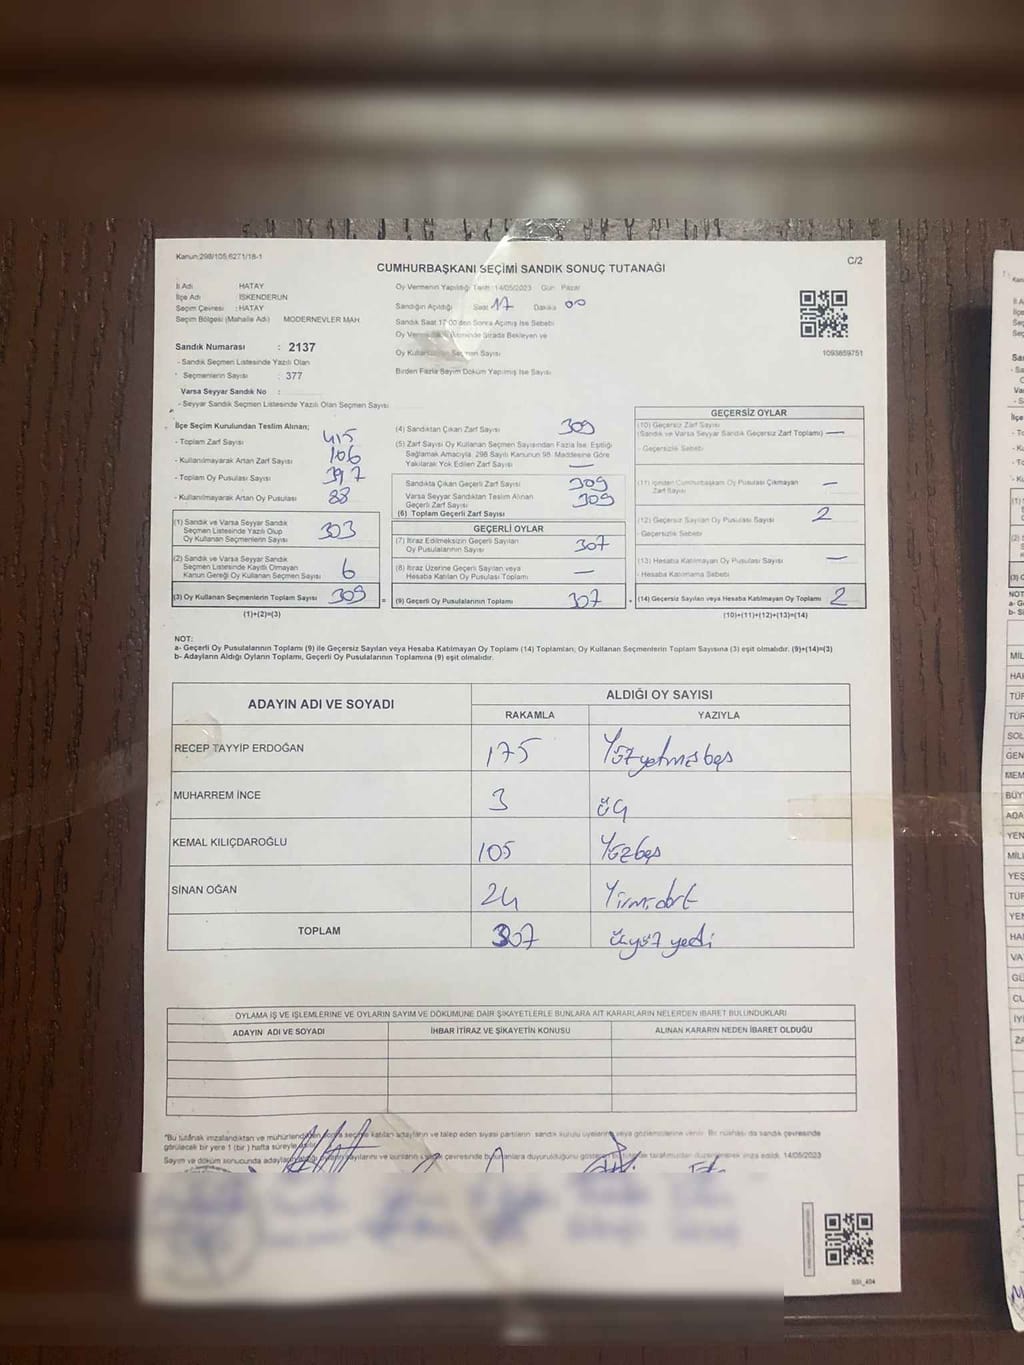 Kanun:298/105,6271/18-1
C/2
CUMHURBAŞKANI SEÇİMİ SANDIK SONUÇ TUTANAĞI
İl Adı HATAY
İlçe Adı İSKENDERUN
Seçim Çevresi : HATAY
Seçim Bölgesi (Mahalle Adı) MODERNEVLER MAH.
Sandık Numarası : 2137
- Sandık Seçmen Listesinde Yazılı Olan
Seçmenlerin Sayısı : 377
Varsa Seyyar Sandık No :
- Seyyar Sandık Seçmen Listesinde Yazılı Olan Seçmen Sayısı
Oy Vermenin Yapıldığı Tarih :14/05/2023 Gün Pazar
Sandığın Açıldığı Saat 17 Dakika 00
Sandık Saat 17:00'den Sonra Açılmış İse Sebebi
Oy Verme Sırada Bekleyen ve
Oy Kullanan Seçmen Sayısı
Birden Fazla Sayım Döküm Yapılmış İse Sayısı
1093859751
İlçe Seçim Kurulundan Teslim Alınan;
- Toplam Zarf Sayısı 415
- Kullanılmayarak Artan Zarf Sayısı 106
- Toplam Oy Pusulası Sayısı 397
- Kullanılmayarak Artan Oy Pusulası 88
(1) Sandık ve Varsa Seyyar Sandık
Seçmen Listesinde Yazılı Olup
Oy Kullanan Seçmenlerin Sayısı 303
(2) Sandık ve Varsa Seyyar Sandık
Seçmen Listesinde Kayıtlı Olmayan
Kanun Gereği Oy Kullanan Seçmen Sayısı 6
(3) Oy Kullanan Seçmenlerin Toplam Sayısı 309 =
(1)+(2)=(3)
(4) Sandıktan Çıkan Zarf Sayısı 309
(5) Zarf Sayısı Oy Kullanan Seçmen Sayısından Fazla İse, Eşitliği
Sağlamak Amacıyla, 298 Sayılı Kanunun 98. Maddesine Göre
Yakılarak Yok Edilen Zarf Sayısı —
Sandıkta Çıkan Geçerli Zarf Sayısı 309
Varsa Seyyar Sandıktan Teslim Alınan
Geçerli Zarf Sayısı 309
(6) Toplam Geçerli Zarf Sayısı
GEÇERLİ OYLAR
(7) İtiraz Edilmeksizin Geçerli Sayılan
Oy Pusulalarının Sayısı 307
(8) İtiraz Üzerine Geçerli Sayılan veya
Hesaba Katılan Oy Pusulası Toplamı —
(9) Geçerli Oy Pusulalarının Toplamı 307 +
GEÇERSİZ OYLAR
(10) Geçersiz Zarf Sayısı
(Sandık ve Varsa Seyyar Sandık Geçersiz Zarf Toplamı) —
- Geçersizlik Sebebi
(11) İçinden Cumhurbaşkanı Oy Pusulası Çıkmayan
Zarf Sayısı —
(12) Geçersiz Sayılan Oy Pusulası Sayısı 2
- Geçersizlik Sebebi
(13) Hesaba Katılmayan Oy Pusulası Sayısı —
- Hesaba Katılmama Sebebi
(14) Geçersiz Sayılan veya Hesaba Katılmayan Oy Toplamı 2
(10)+(11)+(12)+(13)=(14)
NOT:
a- Geçerli Oy Pusulalarının Toplamı (9) ile Geçersiz Sayılan veya Hesaba Katılmayan Oy Toplamı (14) Toplamları, Oy Kullanan Seçmenlerin Toplam Sayısına (3) eşit olmalıdır. (9)+(14)=(3)
b- Adayların Aldığı Oyların Toplamı, Geçerli Oy Pusulalarının Toplamına (9) eşit olmalıdır.
ADAYIN ADI VE SOYADI ALDIĞI OY SAYISI
RAKAMLA YAZIYLA
RECEP TAYYİP ERDOĞAN 175 Yüzyetmişbeş
MUHARREM İNCE 3 üç
KEMAL KILIÇDAROĞLU 105 Yüzbeş
SİNAN OĞAN 24 Yirmidört
TOPLAM 307 üçyüz yedi
OYLAMA İŞ VE İŞLEMLERİNE VE OYLARIN SAYIM VE DÖKÜMÜNE DAİR ŞİKAYETLERLE BUNLARA AİT KARARLARIN NELERDEN İBARET BULUNDUKLARI
ADAYIN ADI VE SOYADI İHBAR İTİRAZ VE ŞİKAYETİN KONUSU ALINAN KARARIN NEDEN İBARET OLDUĞU
"Bu tutanak imzalandıktan ve mühürlendikten sonra seçime katılan adayların ve talep eden siyasi partilerin sandık kurulu üyelerine veya gözlemcilerine verilir. Bir nüshası da sandık çevresinde
görülecek bir yere 1 (bir) hafta süreyle
Sayım ve döküm sonucunda adayların sayılarını ve bunların çevresinde duyurulduğunu gösteren tarafımızdan düzenlenerek imza edildi. 14/05/2023